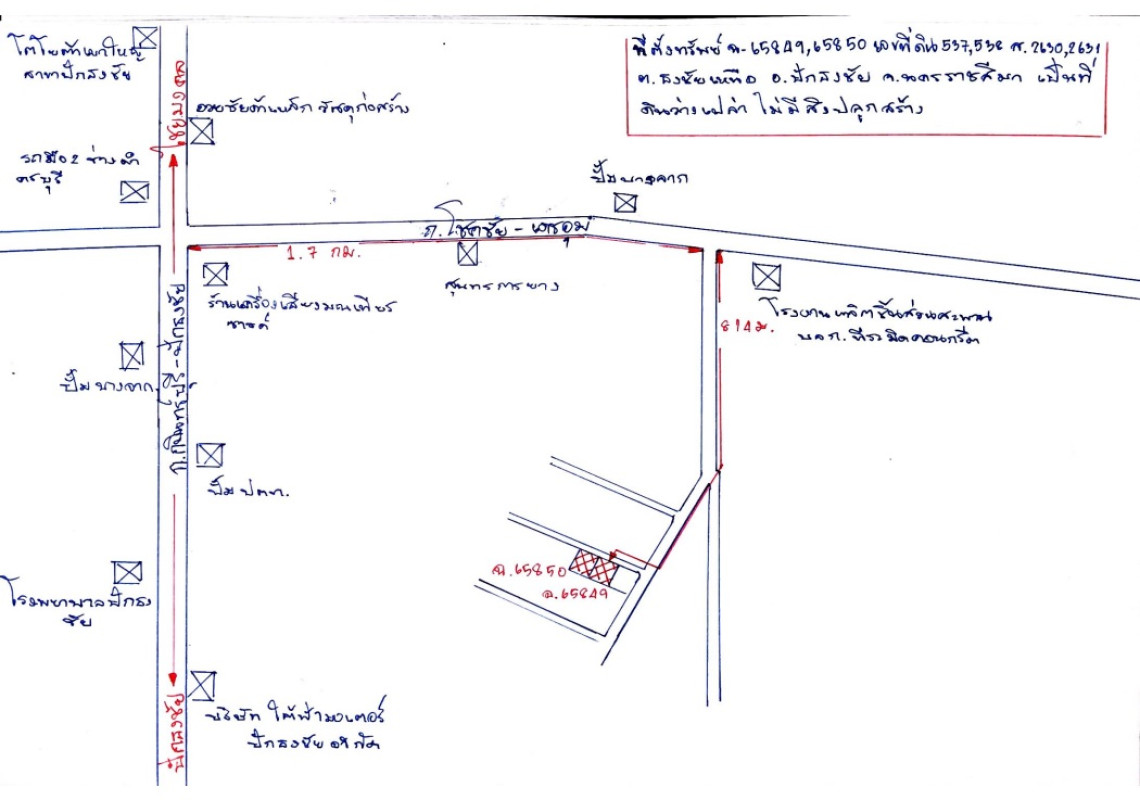 โตโยต้าเขาใหญ่
สาขาปักธงชัย
ที่ตั้งทรัพย์ ฉ.65849,65850 เลขที่ดิน 537,538 ส. 2630,2631
ต. ธงชัยเหนือ อ.ปักธงชัย จ.นครราชสีมา เป็นที่
ดินว่างเปล่า ไม่มีสิ่งปลูกสร้าง
ค้าเหล็ก วัสดุก่อสร้าง
รถมือ 2 ช่างดำ
ปั๊มบางจาก
ถ.โชคชัย - เดชอุดม
1.7 กม.
สุนทรการยาง
ร้านเครื่องเสียงมณเฑียร
ซาวด์
โรงงานผลิตชิ้นส่วนสะพาน
บจก.
814ม.
ปั๊มบางจาก
ถ.กบินทร์บุรี - ปักธงชัย
ปั๊ม ปตท.
ฉ.65850
ฉ.65849
โรงพยาบาลปักธง
ชัย
บริษัท
ปักธงชัย จำกัด
ปักธงชัย